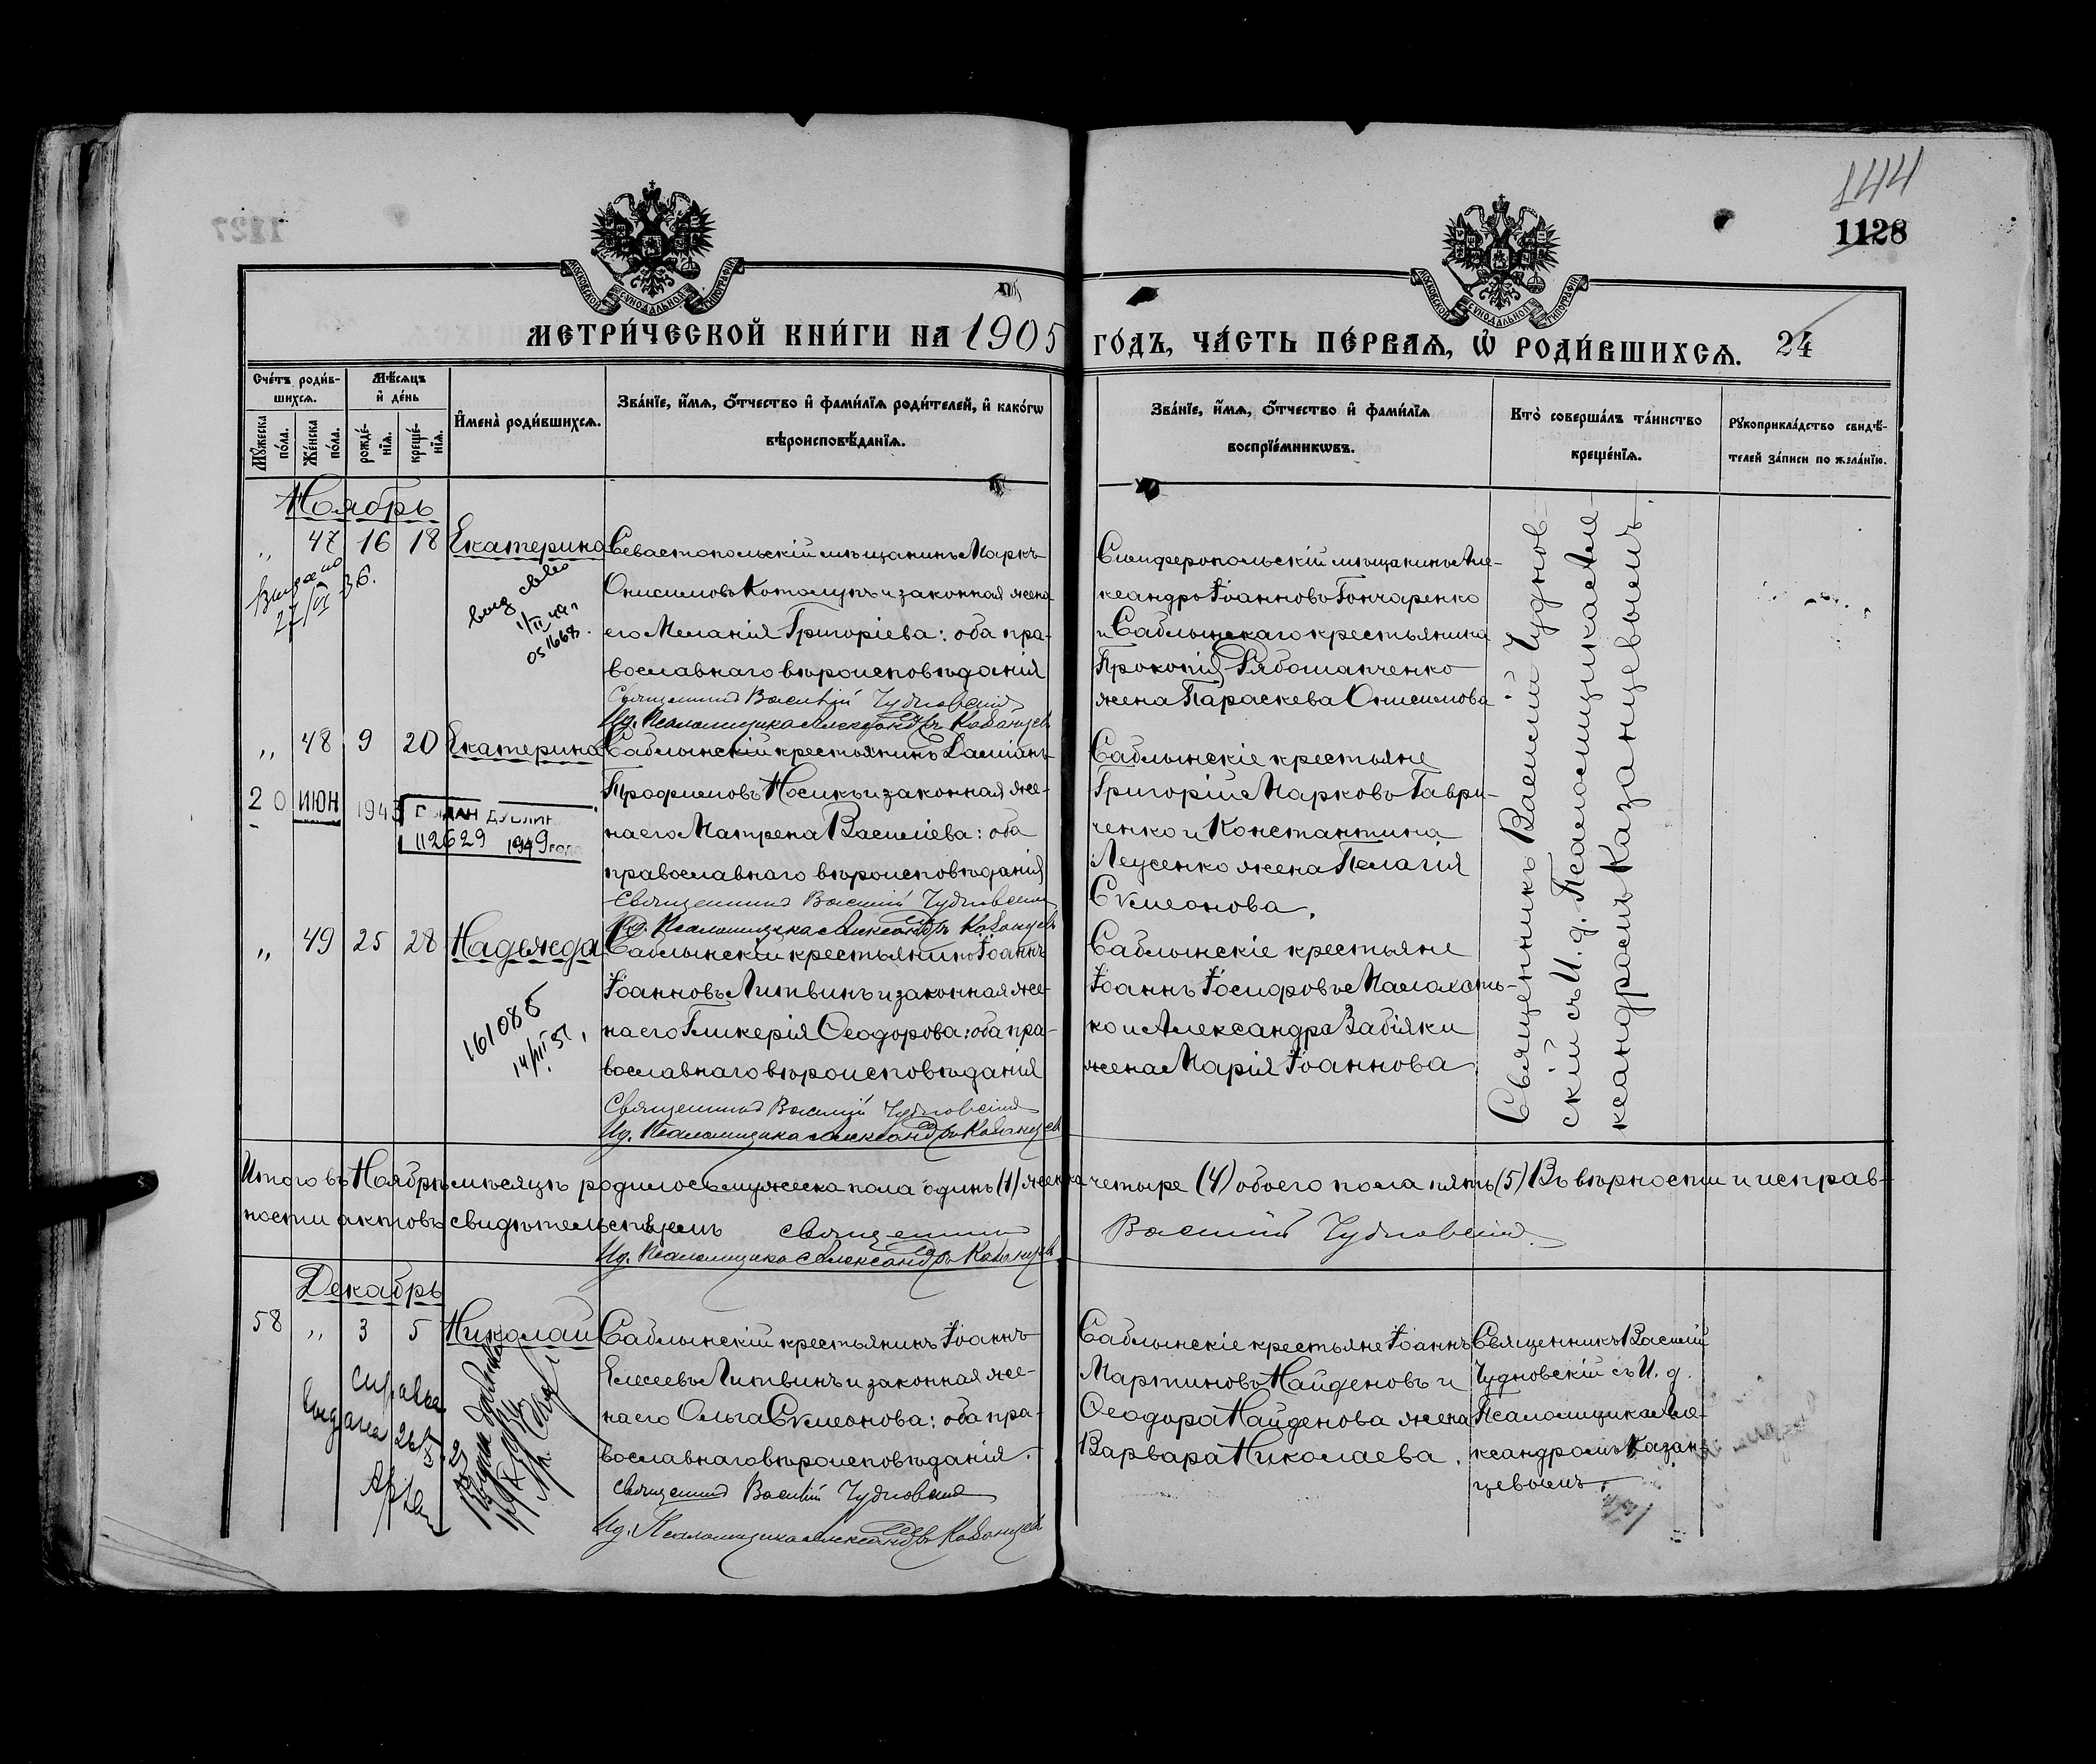 144
1128
МОСКОВСКОЙ СУНОДАЛЬНОЙ ТИПОГРАФІИ
МОСКОВСКОЙ СУНОДАЛЬНОЙ ТИПОГРАФІИ
МЕТРИ́ЧЕСКОЙ КНИ́ГИ НА 1905 ГО́ДЪ, ЧА́СТЬ ПЕ́РВАѦ, Ѡ РОДИ́ВШИХСѦ. 24
Сче́тъ роди́в-
шихсѧ.
Мꙋ́жеска по́ла.
Же́нска по́ла.
Мѣ́сѧцъ
и́ де́нь
рожде́-
нїѧ.
креще́-
нїѧ.
И́мена̀ роди́вшихсѧ.
Зва́нїе, и́мѧ, ѻ́тчество и́ фами́лїѧ роди́телей, и́ како́гѡ
вѣроисповѣ́данїѧ.
Зва́нїе, и́мѧ, ѻ́тчество и́ фами́лїѧ
воспрїе́мникѡвъ.
Кто̀ соверша́лъ та́инство
креще́нїѧ.
Рꙋкоприкла́дство свидѣ́-
телей за́писи по жела́нїю.
Ноябрь
" 47 16 18 Екатерина
Севастопольскій мѣщанинъ Маркъ
Онисимовъ Котолупъ и законная жена
его Меланія Григоріева: оба пра-
вославнаго вѣроисповѣданія
Священникъ Василій Чудновскій
И.д. Псаломщика Александръ Казанцевъ
Симферопольскій мѣщанинъ Але-
ксандръ Іоанновъ Гончаренко
и Саблынскаго крестьянина
Прокопія Рябошапченко
жена Параскева Онисимова
Выдано
27/VI 36.
выд свво
1/II 49 г
051668.
" 48 9 20 Екатерина
Саблынскій крестьянинъ Даміанъ
Трофимовъ Носикъ и законная же-
на его Матрена Василіева: оба
православнаго вѣроисповѣданія
Священникъ Василій Чудновскій
И.д. Псаломщика Александръ Казанцевъ
Саблынскіе крестьяне
Григорій Марковъ Гаври-
ченко и Константина
Леусенко жена Пелагія
Сѵмеонова.
20 ИЮН 194
112629 1949 года
" 49 25 28 Надежда
Саблынскій крестьянинъ Іоаннъ
Іоанновъ Литвинъ и законная же-
на его Гликерія Ѳеодорова: оба пра-
вославнаго вѣроисповѣданія
Священникъ Василій Чудновскій
И.д. Псаломщика Александръ Казанцевъ
Саблынскіе крестьяне
Іоаннъ Іосифовъ Малахать-
ко и Александра Забіяки
жена Марія Іоаннова
Священникъ Василій Чуднов-
скій съ И. д. Псаломщика Але-
ксандромъ Казанцевымъ.
Итого въ Ноябрѣ мѣсяцѣ родилось мужеска пола одинъ (1) женска четыре (4) обоего пола пять (5) Въ вѣрности и исправ-
ности актовъ свидѣтельствуемъ Священникъ Василій Чудновскій
И.д. Псаломщика Александръ Казанцевъ
Декабрь
58 " 3 5 Николай
Саблынскій крестьянинъ Іоаннъ
Елисеевъ Литвинъ и законная же-
на его Ольга Сѵмеонова: оба пра-
вославнаго вѣроисповѣданія.
Священникъ Василій Чудновскій
И.д. Псаломщика Александръ Казанцевъ
Саблынскіе крестьяне Іоаннъ
Мартиновъ Найденовъ и
Ѳеодора Найденова жена
Варвара Николаева.
Священникъ Василій
Чудновскій съ И. д.
Псаломщика Але-
ксандромъ Казан-
цевымъ.
справка
выдана